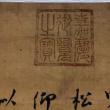 嘉慶
御覽
之寶
松
仰
以